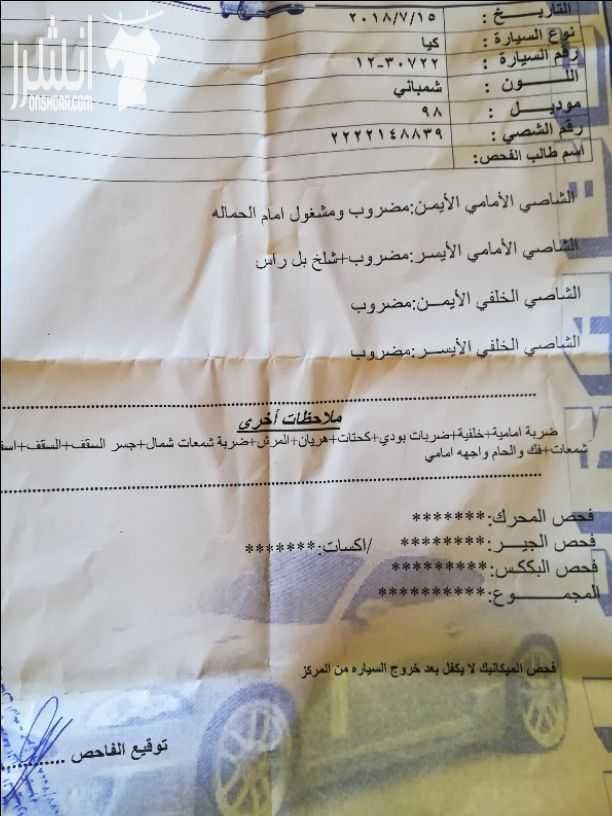 انشرها
ONSHOAR.COM
التاريخ : ٢٠١٨/٧/١٥
نوع السيارة : كيا
رقم السيارة : ١٢-٣٠٧٢٢
اللون : شمباني
موديل : ٩٨
رقم الشصي : ٢٢٢٢١٤٨٨٣٩
اسم طالب الفحص:
الشاصي الأمامي الأيمن:مضروب ومشغول امام الحماله
الشاصي الأمامي الأيسر:مضروب+شلخ بل راس
الشاصي الخلفي الأيمن:مضروب
الشاصي الخلفي الأيسر:مضروب
ملاحظات أخرى
ضربة امامية+خلفية+ضربات بودي+كحتات+هريان+المرش+ضربة شمعات شمال+جسر السقف+السقف+اسف
شمعات+فك والحام واجهه امامي
فحص المحرك:*******
فحص الجير:******** /اكسات:*******
فحص البككس:**********
المجموع:**********
فحص الميكانيك لا يكفل بعد خروج السياره من المركز
توقيع الفاحص ............